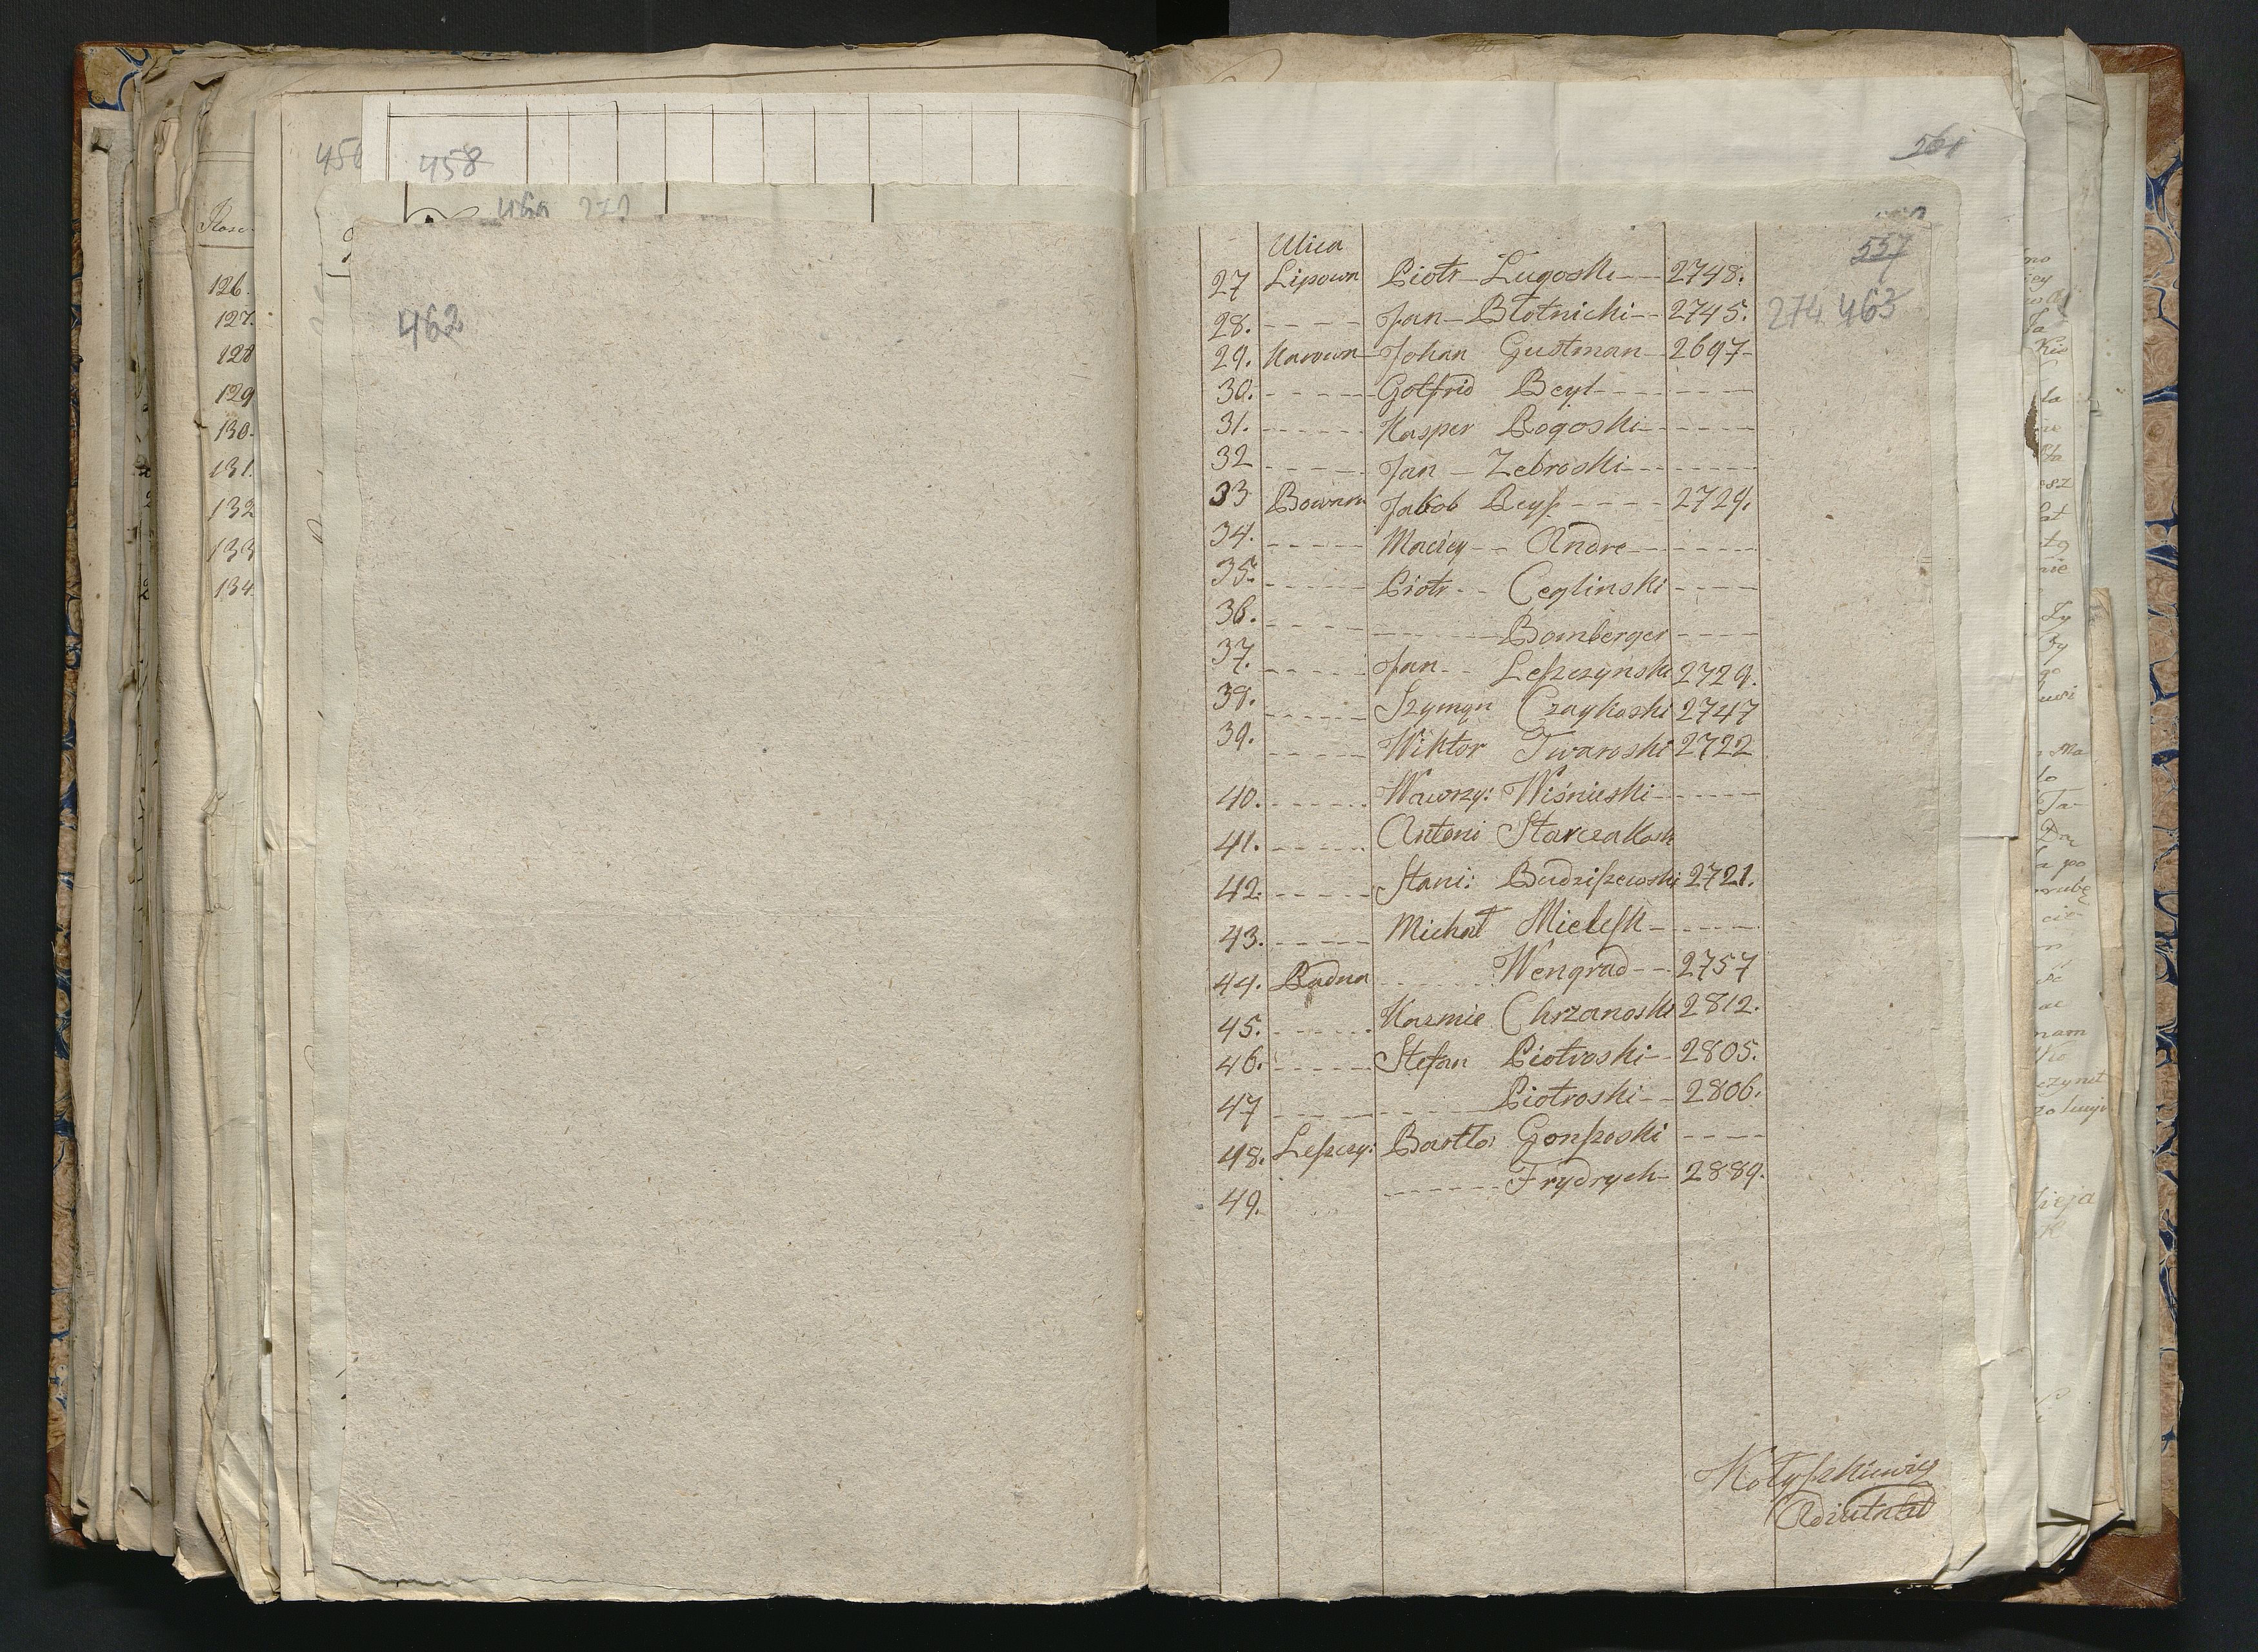 456
458
460 271
Rosc
126.
127.
128
129
130.
131.
132
133
134.
462
561
557
274 463
Ulica
27 Lipown Piotr Lugoski 2748.
28. Jan Błotnicki 2745.
29. Karowa Johan Gustman 2697
30. Gotfrid Beyl
31. Kasper Rogoski
32 Jan Zebroski
33 Bowarn Jakob Reyſs 2729.
34. Maciey Andre
35. Piotr Ceglinski
36. Bomberger
37. Jan Leſzczynski 2729.
38. Szymon Czaykoski 2747
39. Wiktor Twaroski 2722
40. Wawrzy: Wiśnieski
41. Antoni Starczakosk
42. Stani: Budziſzewski 2721.
43. Michał Mieleſk
44. Radna Wengrad 2757
45. Kazmie Chrzanoski 2812.
46. Stefan Piotroski 2805.
47 Piotroski 2806.
48. Leſzczy: Bartło: Gonſzoski
49. Frydrych 2889.
Kotyſzkiewicz
Adiutant